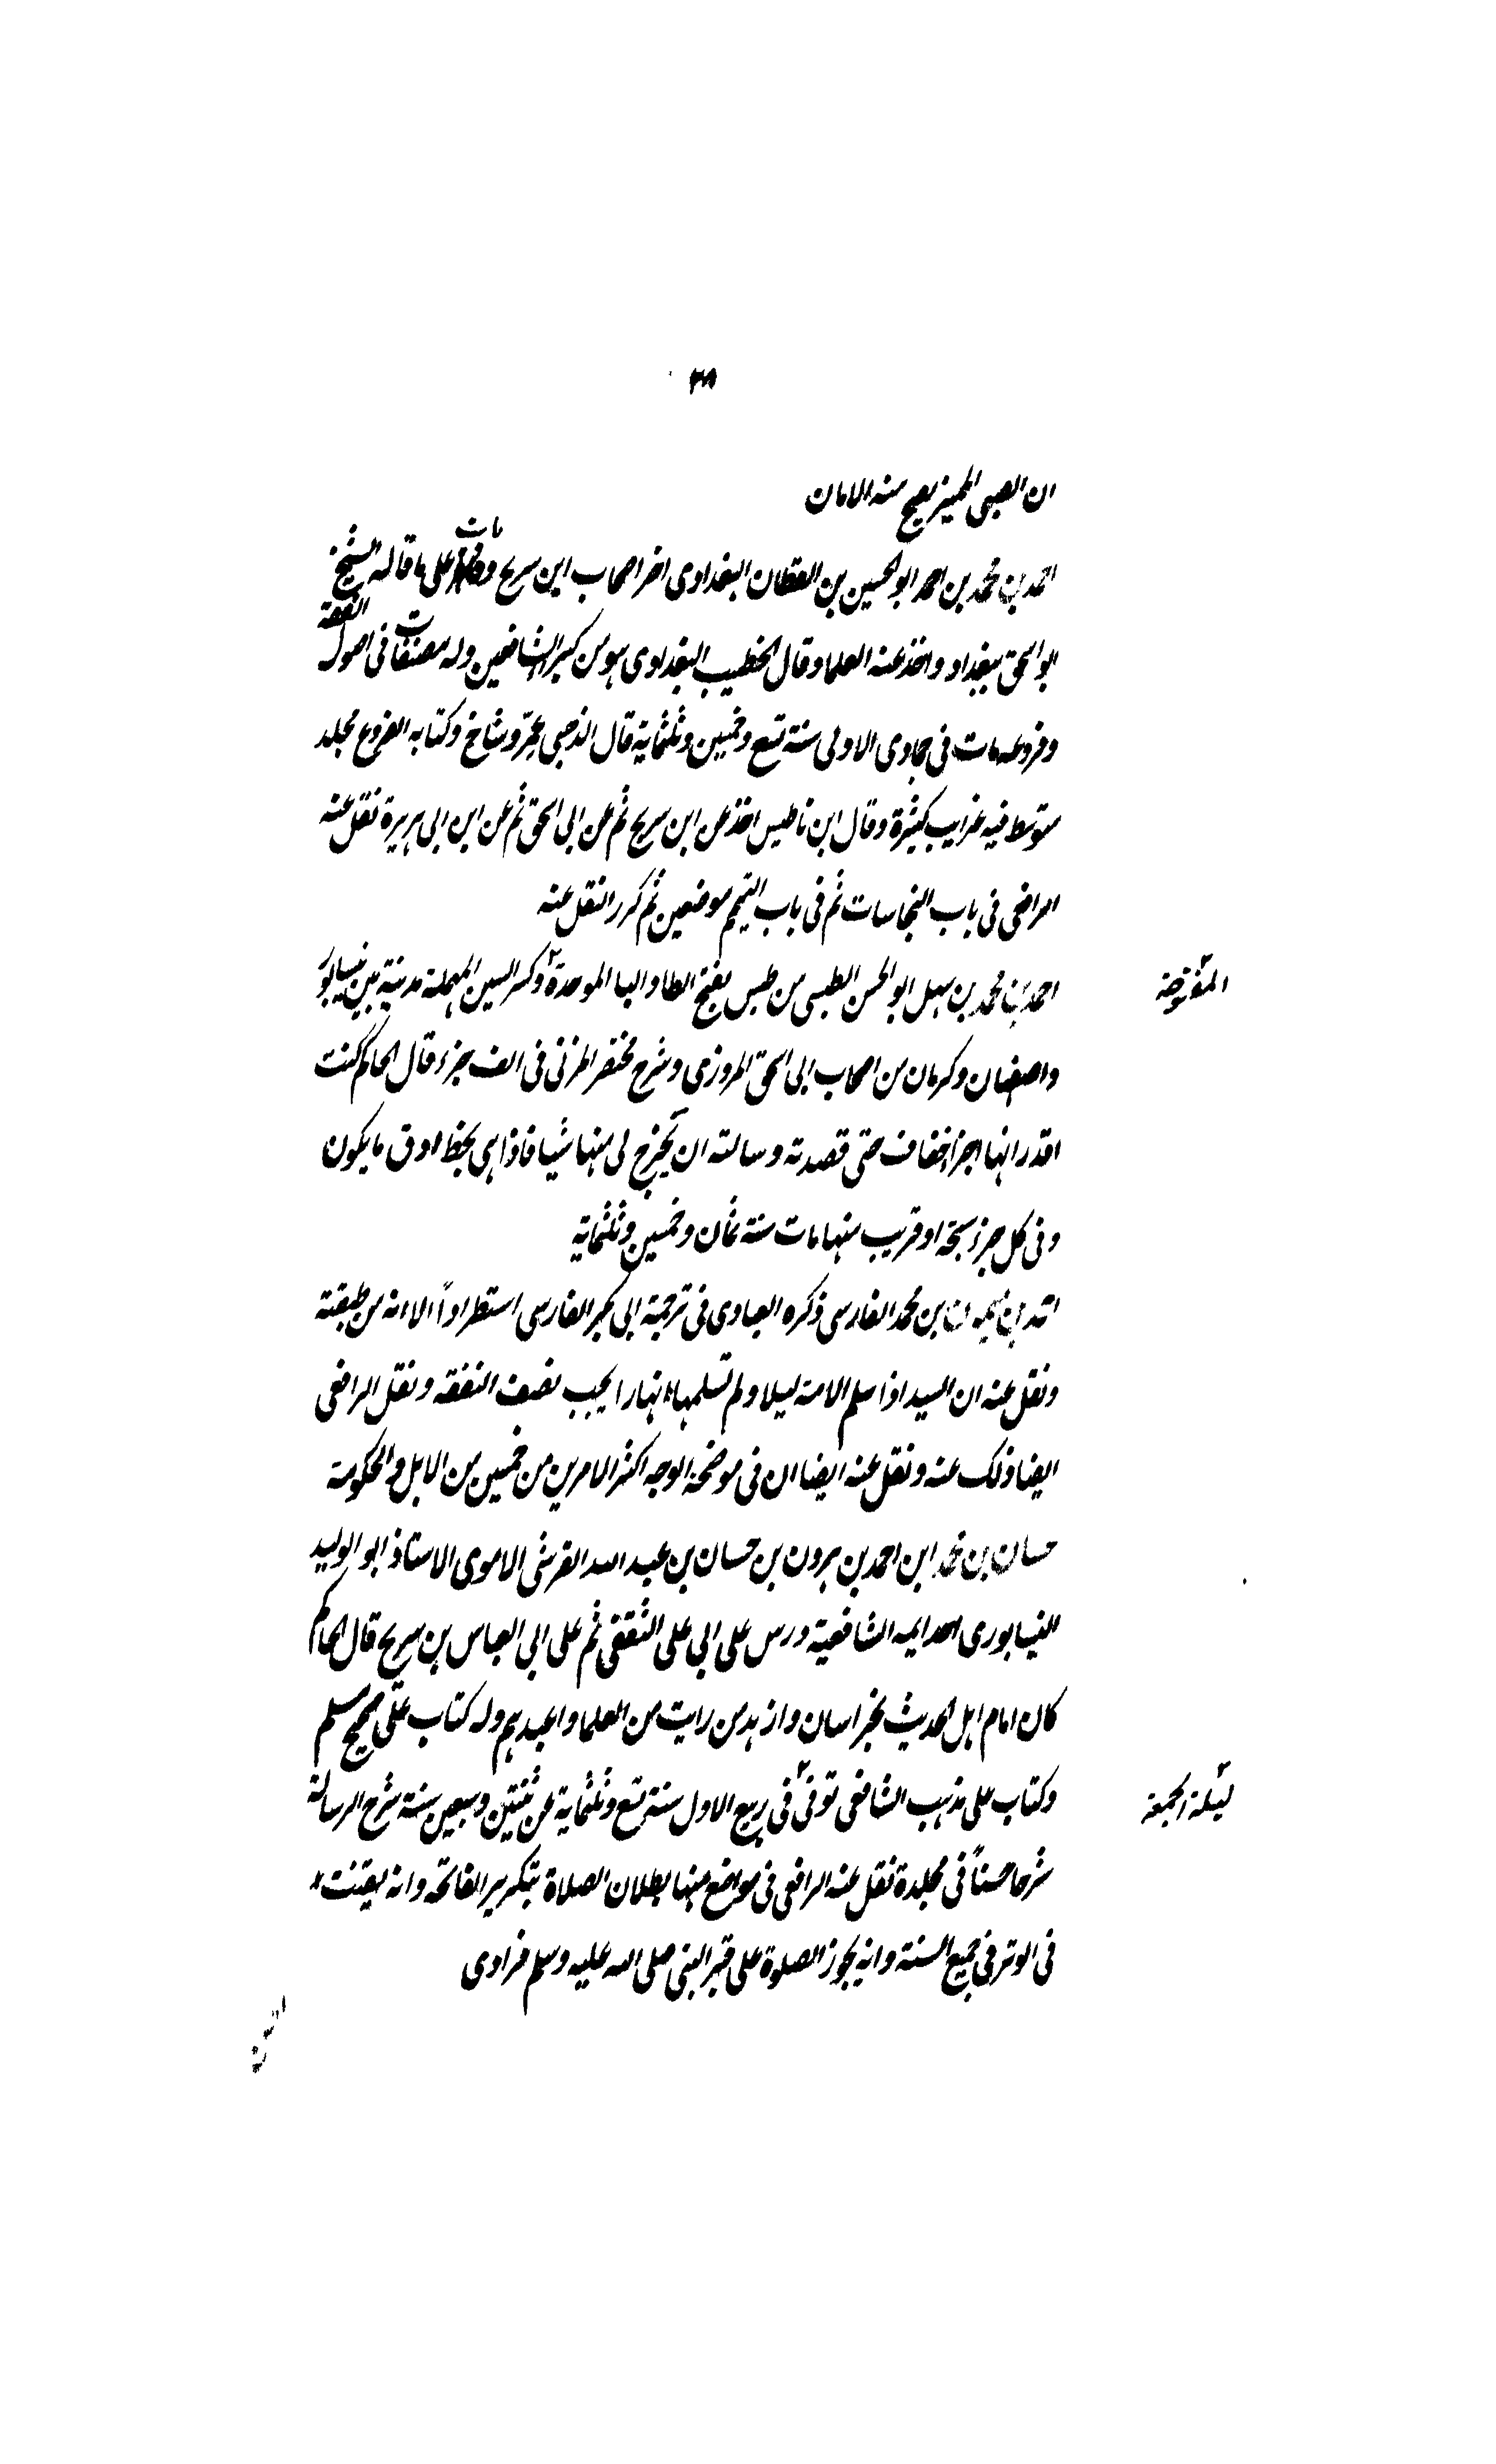 ٣٨
ان الصبى المميز يصح منه الامان
احمد بن محمد بن احمد ابو الحسين بن القطان البغدادى اخر اصحاب ابن سريح مات على ما قاله الشيخ
ابو اسحق ببغداد واخذ عنه العلما وقال الخطيب البغدادى هو من كبرا الشافعين وله مصنفات فى اصول الفقه
وفروعه مات فى جمادى الاولى سنة تسع وخمسين وثلثماية قال الذهبى عمّر وشاخ وكتابه الفروع مجلد
متوسط فيه غرايب كثيرة وقال ابن باطيس اخذ عن ابن سريح ثم عن ابى اسحق ثم عن ابن ابى هريرة نقل عنه
الرافعى فى باب النجاسات ثم فى باب التيمم موضعين ثم كرر النقل عنه
احمد بن محمد بن سهل ابو الحسن الطبسى من طبس بفتح الطا والبا الموحدة وكسر السين المهملة مدينة بين نيسابور
المفتوحة
واصفهان وكرمان من اصحاب ابى اسحق المروزى وشرح مختصر المزنى فى الف جزء قال الحاكم كنت
اقدر انها اجزا خفاف حتى قصدته وسالته ان يخرج لى منها شيا فاذا هى بخط ادق ما يكون
وفى كل جزء سجة او قريب منها مات سنة ثمان وخمسين وثلثماية
بن محمد الفارسى ذكره العبادى فى ترجمة ابى بكر الفارسى استطراداً الا انه من طبقته
ونقل عنه ان السيد اذا سلم الامة ليلا ولم تسلمها نهارا يجب نصف النفقه ونقل الرافعى
ايضا ذلك عنه ونقل عنه ايضا ان فى موضحة الوجه اكثر الامرين من خمسين من الابل والحكومة
حسان بن محمد ابن احمد بن هرون بن حسان بن عبد الله القرشى الاموى الاستاذ ابو الوليد
النيسابورى احد ايمه الشافعية درس على ابى على الثقفى ثم على ابى العباس بن سريح قال الحاكم
كان امام اهل الحديث بخراسان وازهد من رايت من العلما واعبدهم وله كتاب على صحيح مسلم
وكتاب على مذهب الشافعى توفى فى ربيع الاول سنة تسع وثلثماية عن ثنتين وسبعين سنة شرح الرسالة
ليلة الجمعة
شرحا حسناً فى مجلدة نقل عنه الرافعى فى مواضع منها بطلان الصلاة بتكرير الفاتحة وانه يقنت
فى الوتر فى جميع السنة وانه يجوز الصلوة على قبر النبى صلى الله عليه وسلم فرادى